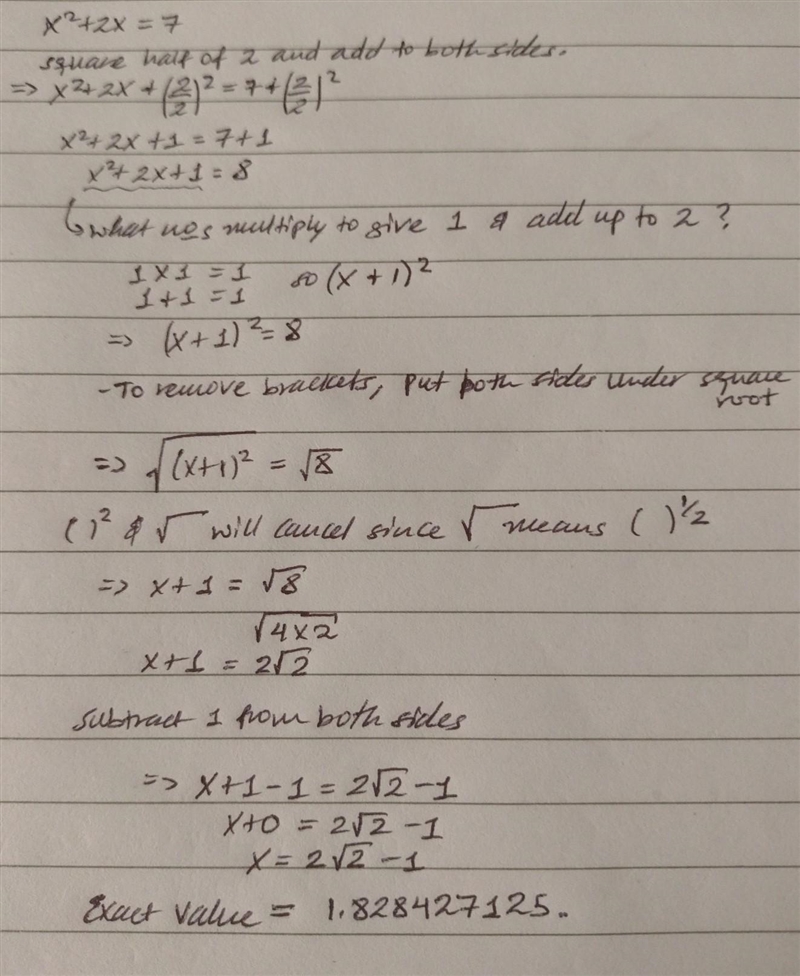 x²+2x = 7
square half of 2 and add to both sides.
=> x²+2x+(2/2)² = 7+(2/2)²
x²+2x+1 = 7+1
x²+2x+1 = 8
↳what nos multiply to give 1 & add up to 2 ?
1 x 1 = 1 so (x+1)²
1+1 = 1
=> (x+1)² = 8
- To remove brackets, put both sides under square root
=> √(x+1)² = √8
( )² & √ will cancel since √ means ( )^1/2
=> x+1 = √8
√4x2
x+1 = 2√2
subtract 1 from both sides
=> x+1-1 = 2√2 -1
x+0 = 2√2 -1
x = 2√2 -1
Exact value = 1.828427125.